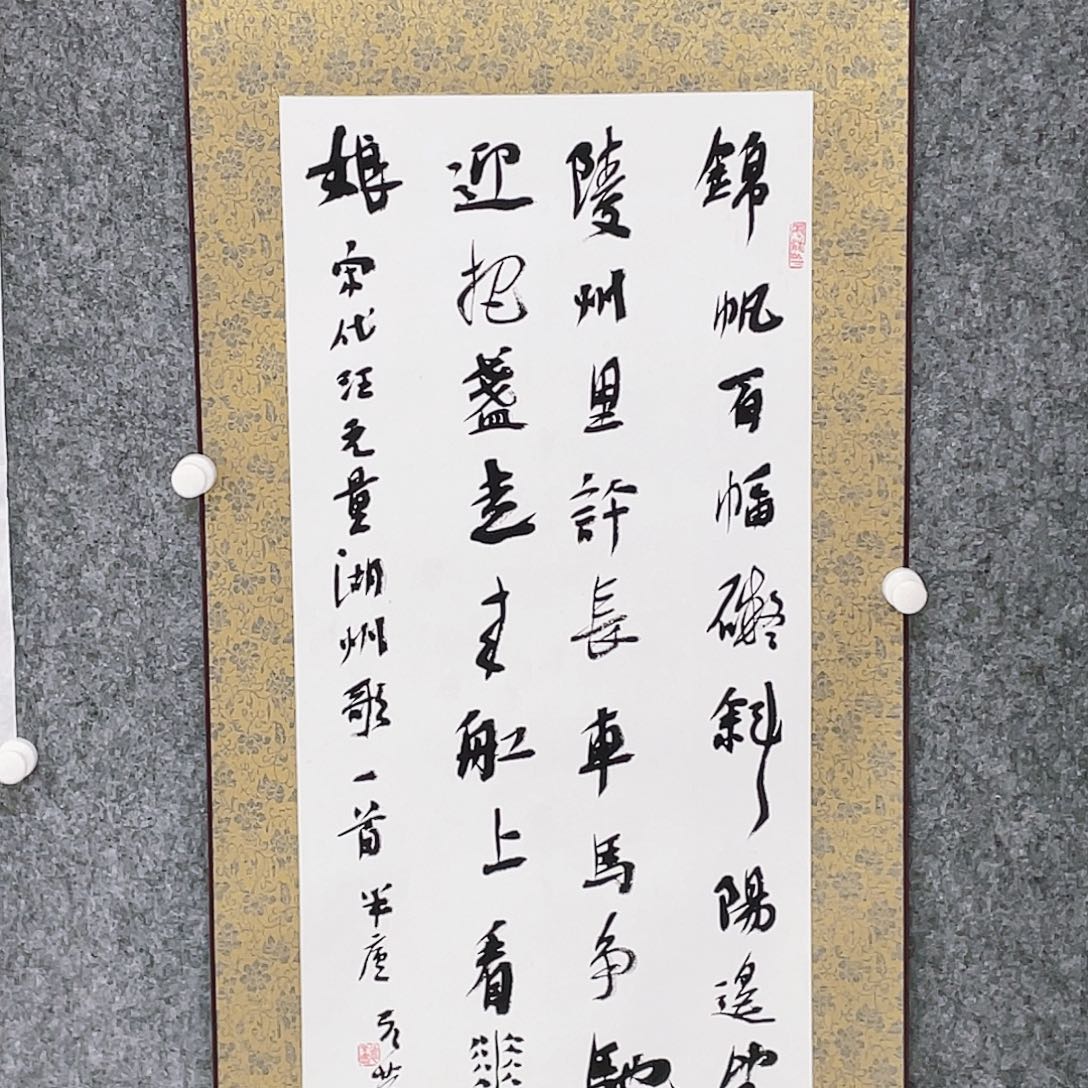 錦帆百幅礙斜陽遙望
陵州里許長車馬爭馳
迎把盞走來船上看花
娘
宋代汪元量湖州歌一首半廬